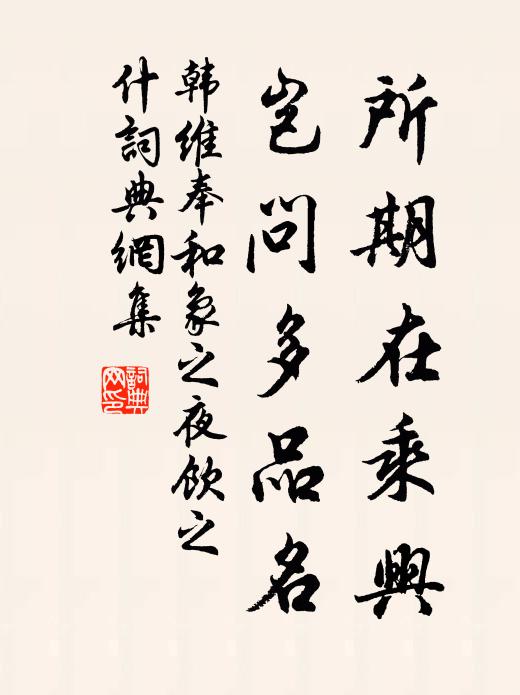 所期在乘興
岂問多品名
韩維奉和象之夜飲之
什詞典網集
詞典網印